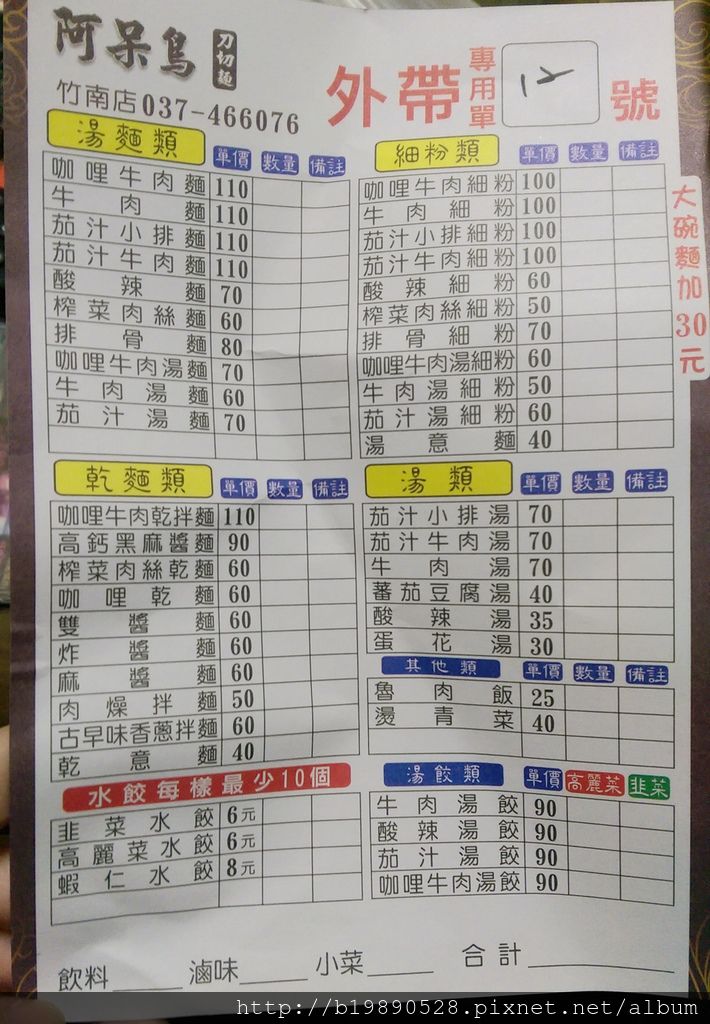 阿呆鳥 刀切麵
竹南店037-466076
外帶 專用單 12 號
湯麵類 單價 數量 備註
咖哩牛肉麵 110
牛肉麵 110
茄汁小排麵 110
茄汁牛肉麵 110
酸辣麵 70
榨菜肉絲麵 60
排骨麵 80
咖哩牛肉湯麵 70
牛肉湯麵 60
茄汁湯麵 70
細粉類 單價 數量 備註
咖哩牛肉細粉 100
牛肉細粉 100
茄汁小排細粉 100
茄汁牛肉細粉 100
酸辣細粉 60
榨菜肉絲細粉 50
排骨細粉 70
咖哩牛肉湯細粉 60
牛肉湯細粉 50
茄汁湯細粉 60
湯意麵 40
大碗麵加30元
乾麵類 單價 數量 備註
咖哩牛肉乾拌麵 110
高鈣黑麻醬麵 90
榨菜肉絲乾麵 60
咖哩乾麵 60
雙醬麵 60
炸醬麵 60
麻醬麵 60
肉燥拌麵 50
古早味香蔥拌麵 60
乾意麵 40
湯類 單價 數量 備註
茄汁小排湯 70
茄汁牛肉湯 70
牛肉湯 70
蕃茄豆腐湯 40
酸辣湯 35
蛋花湯 30
其他類 單價 數量 備註
魯肉飯 25
燙青菜 40
水餃每樣最少10個
韭菜水餃 6元
高麗菜水餃 6元
蝦仁水餃 8元
湯餃類 單價 高麗菜 韭菜
牛肉湯餃 90
酸辣湯餃 90
茄汁湯餃 90
咖哩牛肉湯餃 90
飲料 滷味 小菜 合計
http://b19890528.pixnet.net/album